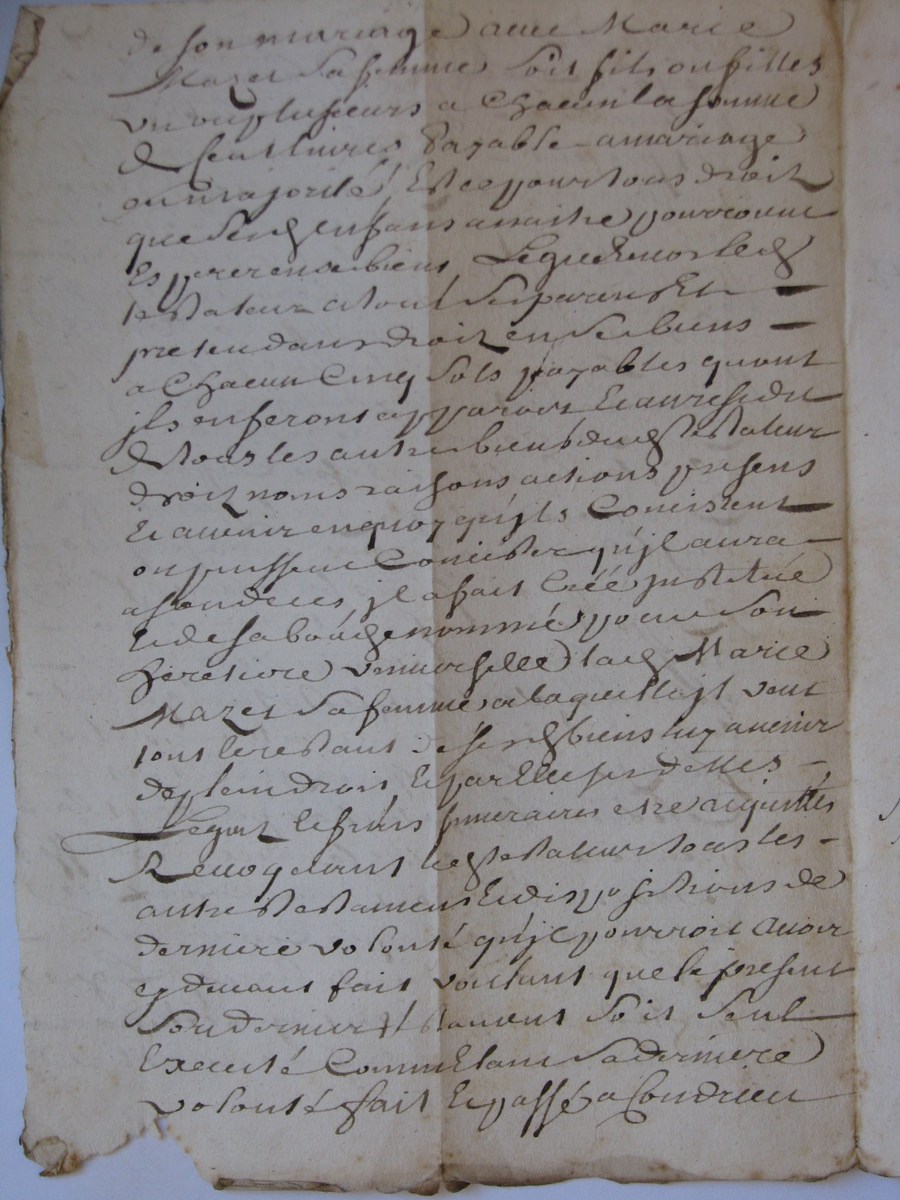 de son mariage avec Marie
Mazet sa femme soit fils ou filles
un ou plusieurs a chacun la somme
de cent livres payable a mariage
ou majorité, Est ce pour tous droit
que sesd enfans a naistre pourroint
Esperer en ses biens, Legue encor led
testateur a tous ses parens Et
pretendans droit en ses biens
a chacun cinq sols payables quant
jls en feront apparoir Et au residu
de tous les autres biens dud testateur
droit noms raisons actions presens
Et avenir en quoy qu'jls consistent
ou puissent consister qu'jl aura
a son deces, jl a fait créé jnstitué
Et de sa bouche nommé pour son
heretiere universelle lad Marie
Mazet sa femme a laquelle jl veut
tout le restant de sesd biens luy avenir
de plein droit, Et par Elle ses dettes
Legat Et frais funeraires estre acquittés
Revoquant led testateur tous les
autres testamens Et dispositions de
derniere volonté qu'jl pourroit avoir
cy devant fait voulant que le present
son dernier testament soit seul
Executé comme Etant sa derniere
volonté fait Et passé a Condrieu